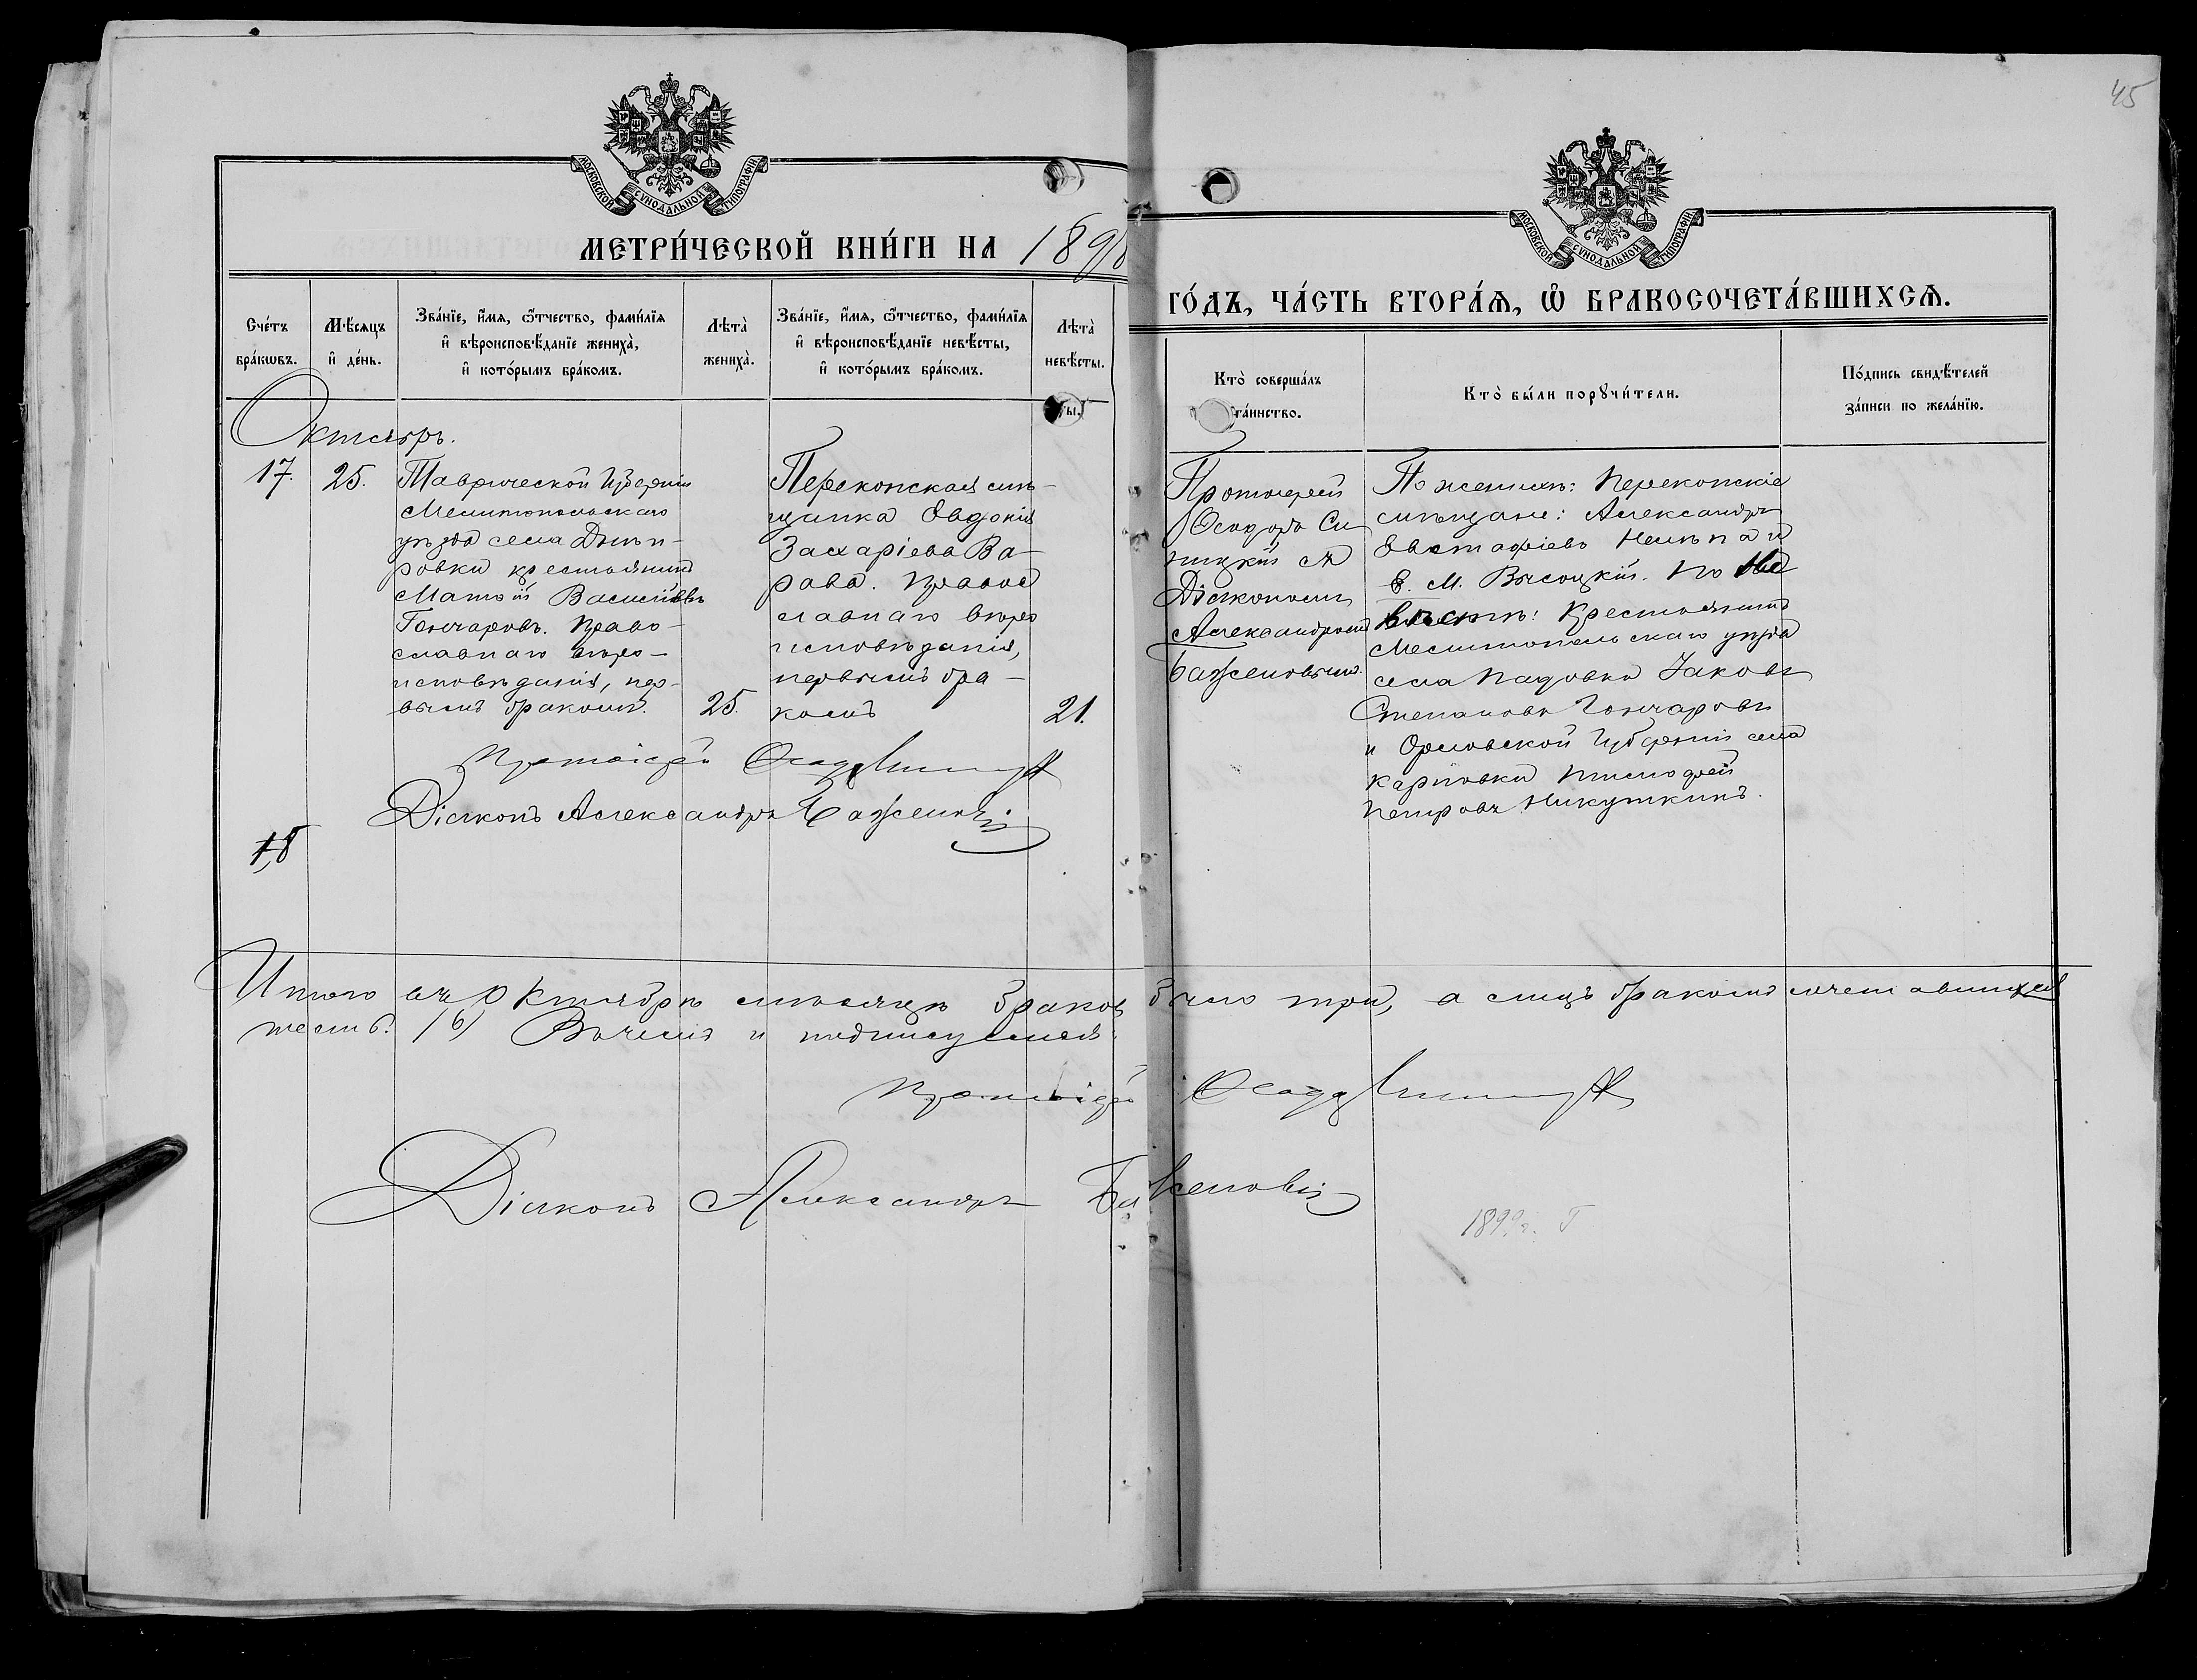 45
МОСКОВСКОЙ СѴНОДАЛЬНОЙ ТИПОГРАФІИ
МОСКОВСКОЙ СѴНОДАЛЬНОЙ ТИПОГРАФІИ
МЕТРИ́ЧЕСКОЙ КНИ́ГИ НА 1898
ГО́ДЪ, ЧА́СТЬ ВТОРА́Ѧ, Ѽ БРАКОСОЧЕТА́ВШИХСѦ.
Сче́тъ бра́кѡвъ.
Мѣ́сѧцъ и҆ де́нь.
Зва́нїе, и҆́мѧ, ѻ҆́тчество, фами́лїѧ
и҆ вѣроисповѣ́данїе жениха̀,
и҆ кото́рымъ бра́комъ.
Лѣта̀ жениха̀.
Зва́нїе, и҆́мѧ, ѻ҆́тчество, фами́лїѧ
и҆ вѣроисповѣ́данїе невѣ́сты,
и҆ кото́рымъ бра́комъ.
Лѣта̀ невѣ́сты.
Кто̀ соверша́лъ
та́инство.
Кто̀ бы́ли порꙋчи́тели.
По́дпись свидѣ́телей
за́писи по жела́нїю.
Октябрь.
17. 25.
Таврической Губерніи
Мелитопольскаго
уѣзда села Днѣп-
ровки крестьянинъ
Матѳій Васильевъ
Гончаровъ. Право-
славнаго вѣро-
исповѣданія, пер-
вымъ бракомъ. 25.
Перекопская мѣ-
щанка Евдокія
Захаріева Ва-
рава. Правос
лавнаго вѣро
исповѣданія,
первымъ бра-
комъ 21.
Протоіерей
Ѳеодоръ Си
ницкій съ
Діакономъ
Александромъ
Баженовымъ.
По женихѣ: Перекопскіе
мѣщане: Александръ
Евстафіевъ и
В. М. Высоцкій. По Не
вѣстѣ: Крестьянинъ
Мелитопольскаго уѣзда
села Іаковъ
Степановъ Гончаровъ
и Орловской Губерніи села
Карповки Тимоѳей
Петровъ Никуткинъ.
Протоіерей Ѳеодоръ Синицкій
Діаконъ Александръ Баженовъ
18
Итого въ Октябрѣ мѣсяцѣ браковъ было три, а лицъ бракомъ сочетавшихся
шесть. (6) Въ чемъ и подписуемся:
Протоіерей Ѳеодоръ Синицкій
Діаконъ Александръ Баженовъ